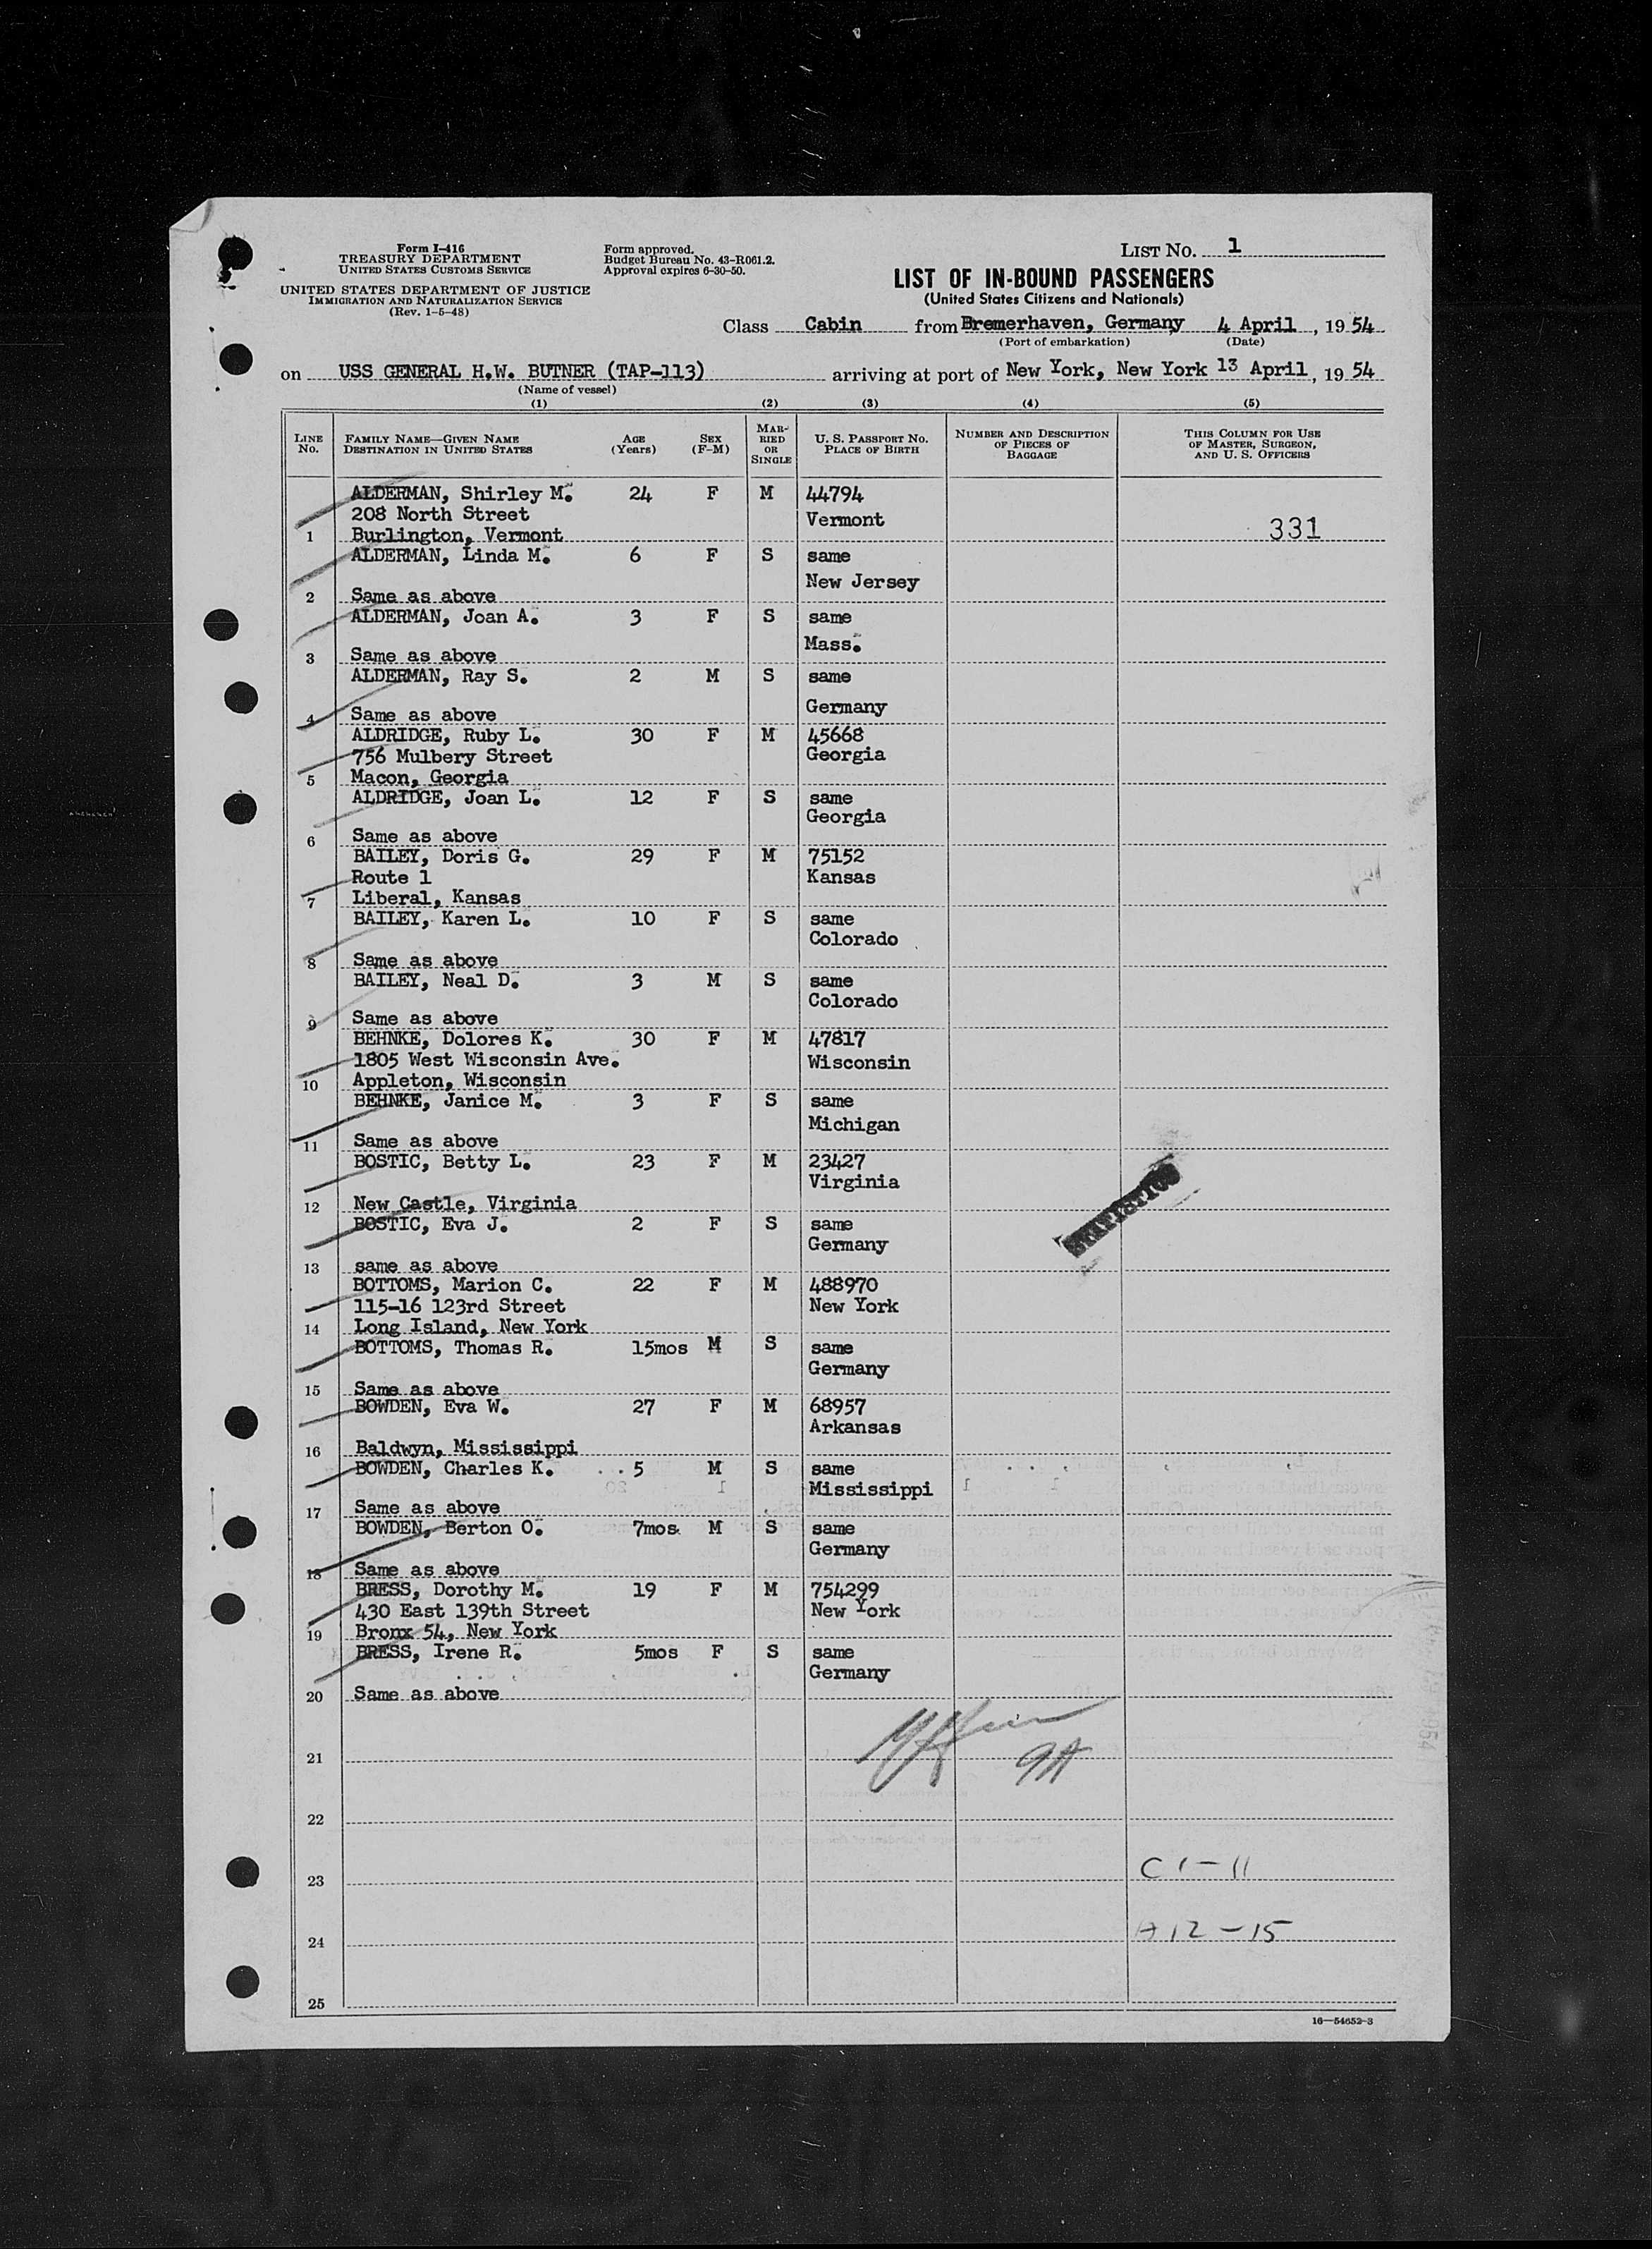 Form I-416
TREASURY DEPARTMENT
UNITED STATES CUSTOMS SERVICE
UNITED STATES DEPARTMENT OF JUSTICE
IMMIGRATION AND NATURALIZATION SERVICE
(Rev. 1-5-48)
Form approved.
Budget Bureau No. 43-R061.2.
Approval expires 6-30-50.
LIST NO. 1
LIST OF IN-BOUND PASSENGERS
(United States Citizens and Nationals)
Class Cabin from Bremerhaven, Germany 4 April, 1954
(Port of embarkation) (Date)
on USS GENERAL H.W. BUTNER (TAP-113) arriving at port of New York, New York 13 April, 1954
(Name of vessel)
(1) (2) (3) (4) (5)
LINE No.
FAMILY NAME—GIVEN NAME
DESTINATION IN UNITED STATES
AGE (Years)
SEX (F-M)
MARRIED OR SINGLE
U. S. PASSPORT NO.
PLACE OF BIRTH
NUMBER AND DESCRIPTION OF PIECES OF BAGGAGE
THIS COLUMN FOR USE OF MASTER, SURGEON, AND U. S. OFFICERS
ALDERMAN, Shirley M. 24 F M 44794
208 North Street Vermont
1 Burlington, Vermont 331
ALDERMAN, Linda M. 6 F S same
New Jersey
2 Same as above
ALDERMAN, Joan A. 3 F S same
Mass.
3 Same as above
ALDERMAN, Ray S. 2 M S same
Germany
4 Same as above
ALDRIDGE, Ruby L. 30 F M 45668
756 Mulbery Street Georgia
5 Macon, Georgia
ALDRIDGE, Joan L. 12 F S same
Georgia
6 Same as above
BAILEY, Doris G. 29 F M 75152
Route 1 Kansas
7 Liberal, Kansas
BAILEY, Karen L. 10 F S same
Colorado
8 Same as above
BAILEY, Neal D. 3 M S same
Colorado
9 Same as above
BEHNKE, Dolores K. 30 F M 47817
1805 West Wisconsin Ave. Wisconsin
10 Appleton, Wisconsin
BEHNKE, Janice M. 3 F S same
Michigan
11 Same as above
BOSTIC, Betty L. 23 F M 23427
Virginia
12 New Castle, Virginia
BOSTIC, Eva J. 2 F S same
Germany
STATISTICS
13 same as above
BOTTOMS, Marion C. 22 F M 488970
115-16 123rd Street New York
14 Long Island, New York
BOTTOMS, Thomas R. 15mos M S same
Germany
15 Same as above
BOWDEN, Eva W. 27 F M 68957
Arkansas
16 Baldwyn, Mississippi
BOWDEN, Charles K. 5 M S same
Mississippi
17 Same as above
BOWDEN, Berton O. 7mos. M S same
Germany
18 Same as above
BRESS, Dorothy M. 19 F M 754299
430 East 139th Street New York
19 Bronx 54, New York
BRESS, Irene R. 5mos F S same
Germany
20 Same as above
21
22
23 C 1-11
24 A 12-15
25
16—54652-3